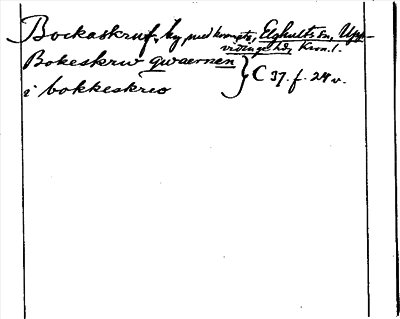 Bockaskruf, by med kronqv., Elghults sn, Upp-
vidinge hd, Kron. l.
Bokeskrw qwaernen } C 37. f. 24 v.
i bokkeskreo